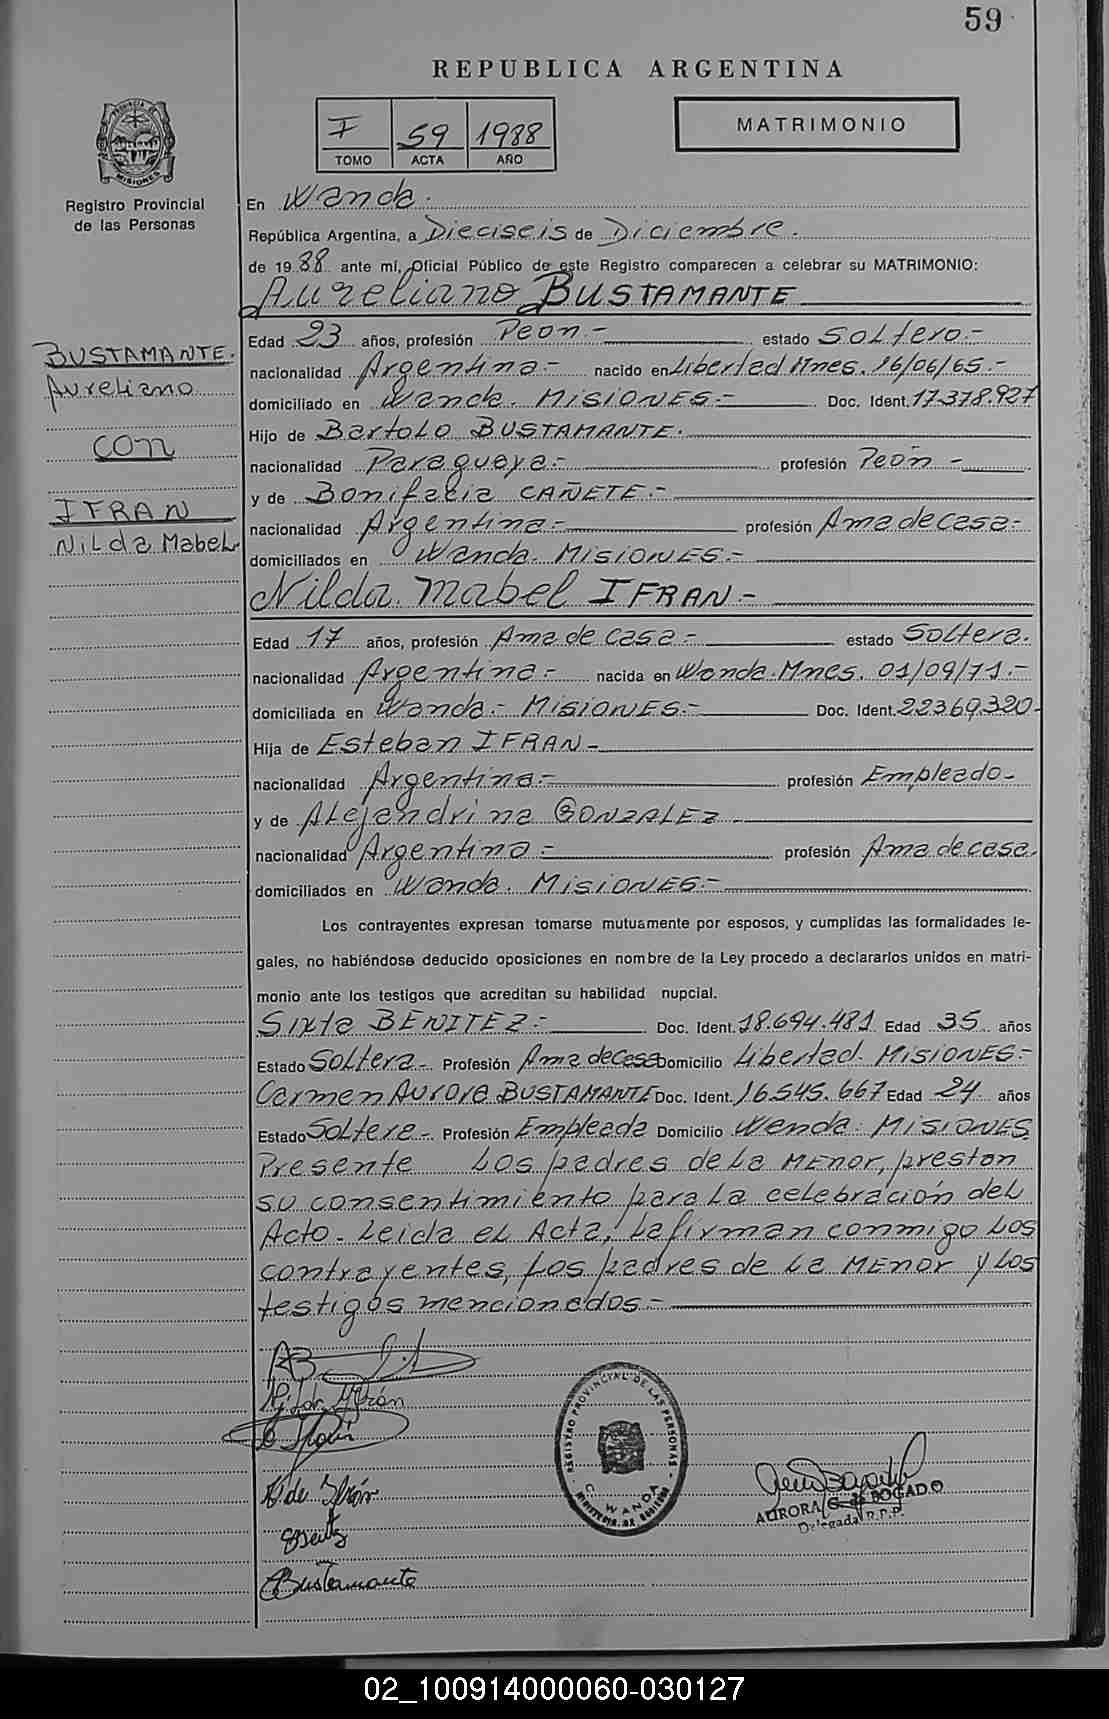 59
REPUBLICA ARGENTINA
I 59 1988
TOMO ACTA AÑO
MATRIMONIO
PROVINCIA DE
MISIONES
Registro Provincial
de las Personas
En Wanda.
República Argentina, a Dieciseis de Diciembre.
de 1988 ante mi, Oficial Público de este Registro comparecen a celebrar su MATRIMONIO:
Aureliano BUSTAMANTE
Edad 23 años, profesión Peon.- estado Soltero.-
nacionalidad Argentina.- nacido en Libertad Mnes. 16/06/65.-
domiciliado en Wanda. MISIONES.- Doc. Ident. 17.378.927
Hijo de Bartolo BUSTAMANTE.
nacionalidad Paraguaya.- profesión Peón -
y de Bonifacia CAÑETE.-
nacionalidad Argentina.- profesión Ama de casa-
domiciliados en Wanda. MISIONES.-
BUSTAMANTE.
Aureliano
con
IFRAN
Nilda Mabel
Nilda Mabel IFRAN-
Edad 17 años, profesión Ama de casa.- estado Soltera.
nacionalidad Argentina.- nacida en Wanda. Mnes. 01/09/71.-
domiciliada en Wanda.- MISIONES.- Doc. Ident. 22369.320-
Hija de Esteban IFRAN-
nacionalidad Argentina.- profesión Empleado-
y de Alejandrina GONZALEZ-
nacionalidad Argentina- profesión Ama de casa
domiciliados en Wanda. MISIONES.-
Los contrayentes expresan tomarse mutuamente por esposos, y cumplidas las formalidades le-
gales, no habiéndose deducido oposiciones en nombre de la Ley procedo a declararlos unidos en matri-
monio ante los testigos que acreditan su habilidad nupcial.
Sixta BENITEZ.- Doc. Ident. 18.694.481 Edad 35 años
Estado Soltera- Profesión Ama de Casa Domicilio Libertad. MISIONES.-
Carmen Aurora BUSTAMANTE Doc. Ident. 16.545.667 Edad 24 años
Estado Soltera- Profesión Empleada Domicilio Wanda. MISIONES
Presente Los padres de la MENOR, prestan
su consentimiento para la celebración del
Acto. Leida el Acta, la firman conmigo los
contrayentes, los padres de la MENOR y los
testigos mencionados.-
AB
Nilda Ifrán
de Ifrán
CBustamante
REGISTRO PROVINCIAL DE LAS PERSONAS
WANDA
AURORA G. de BOGADO
Delegada R.P.P.
02_100914000060-030127